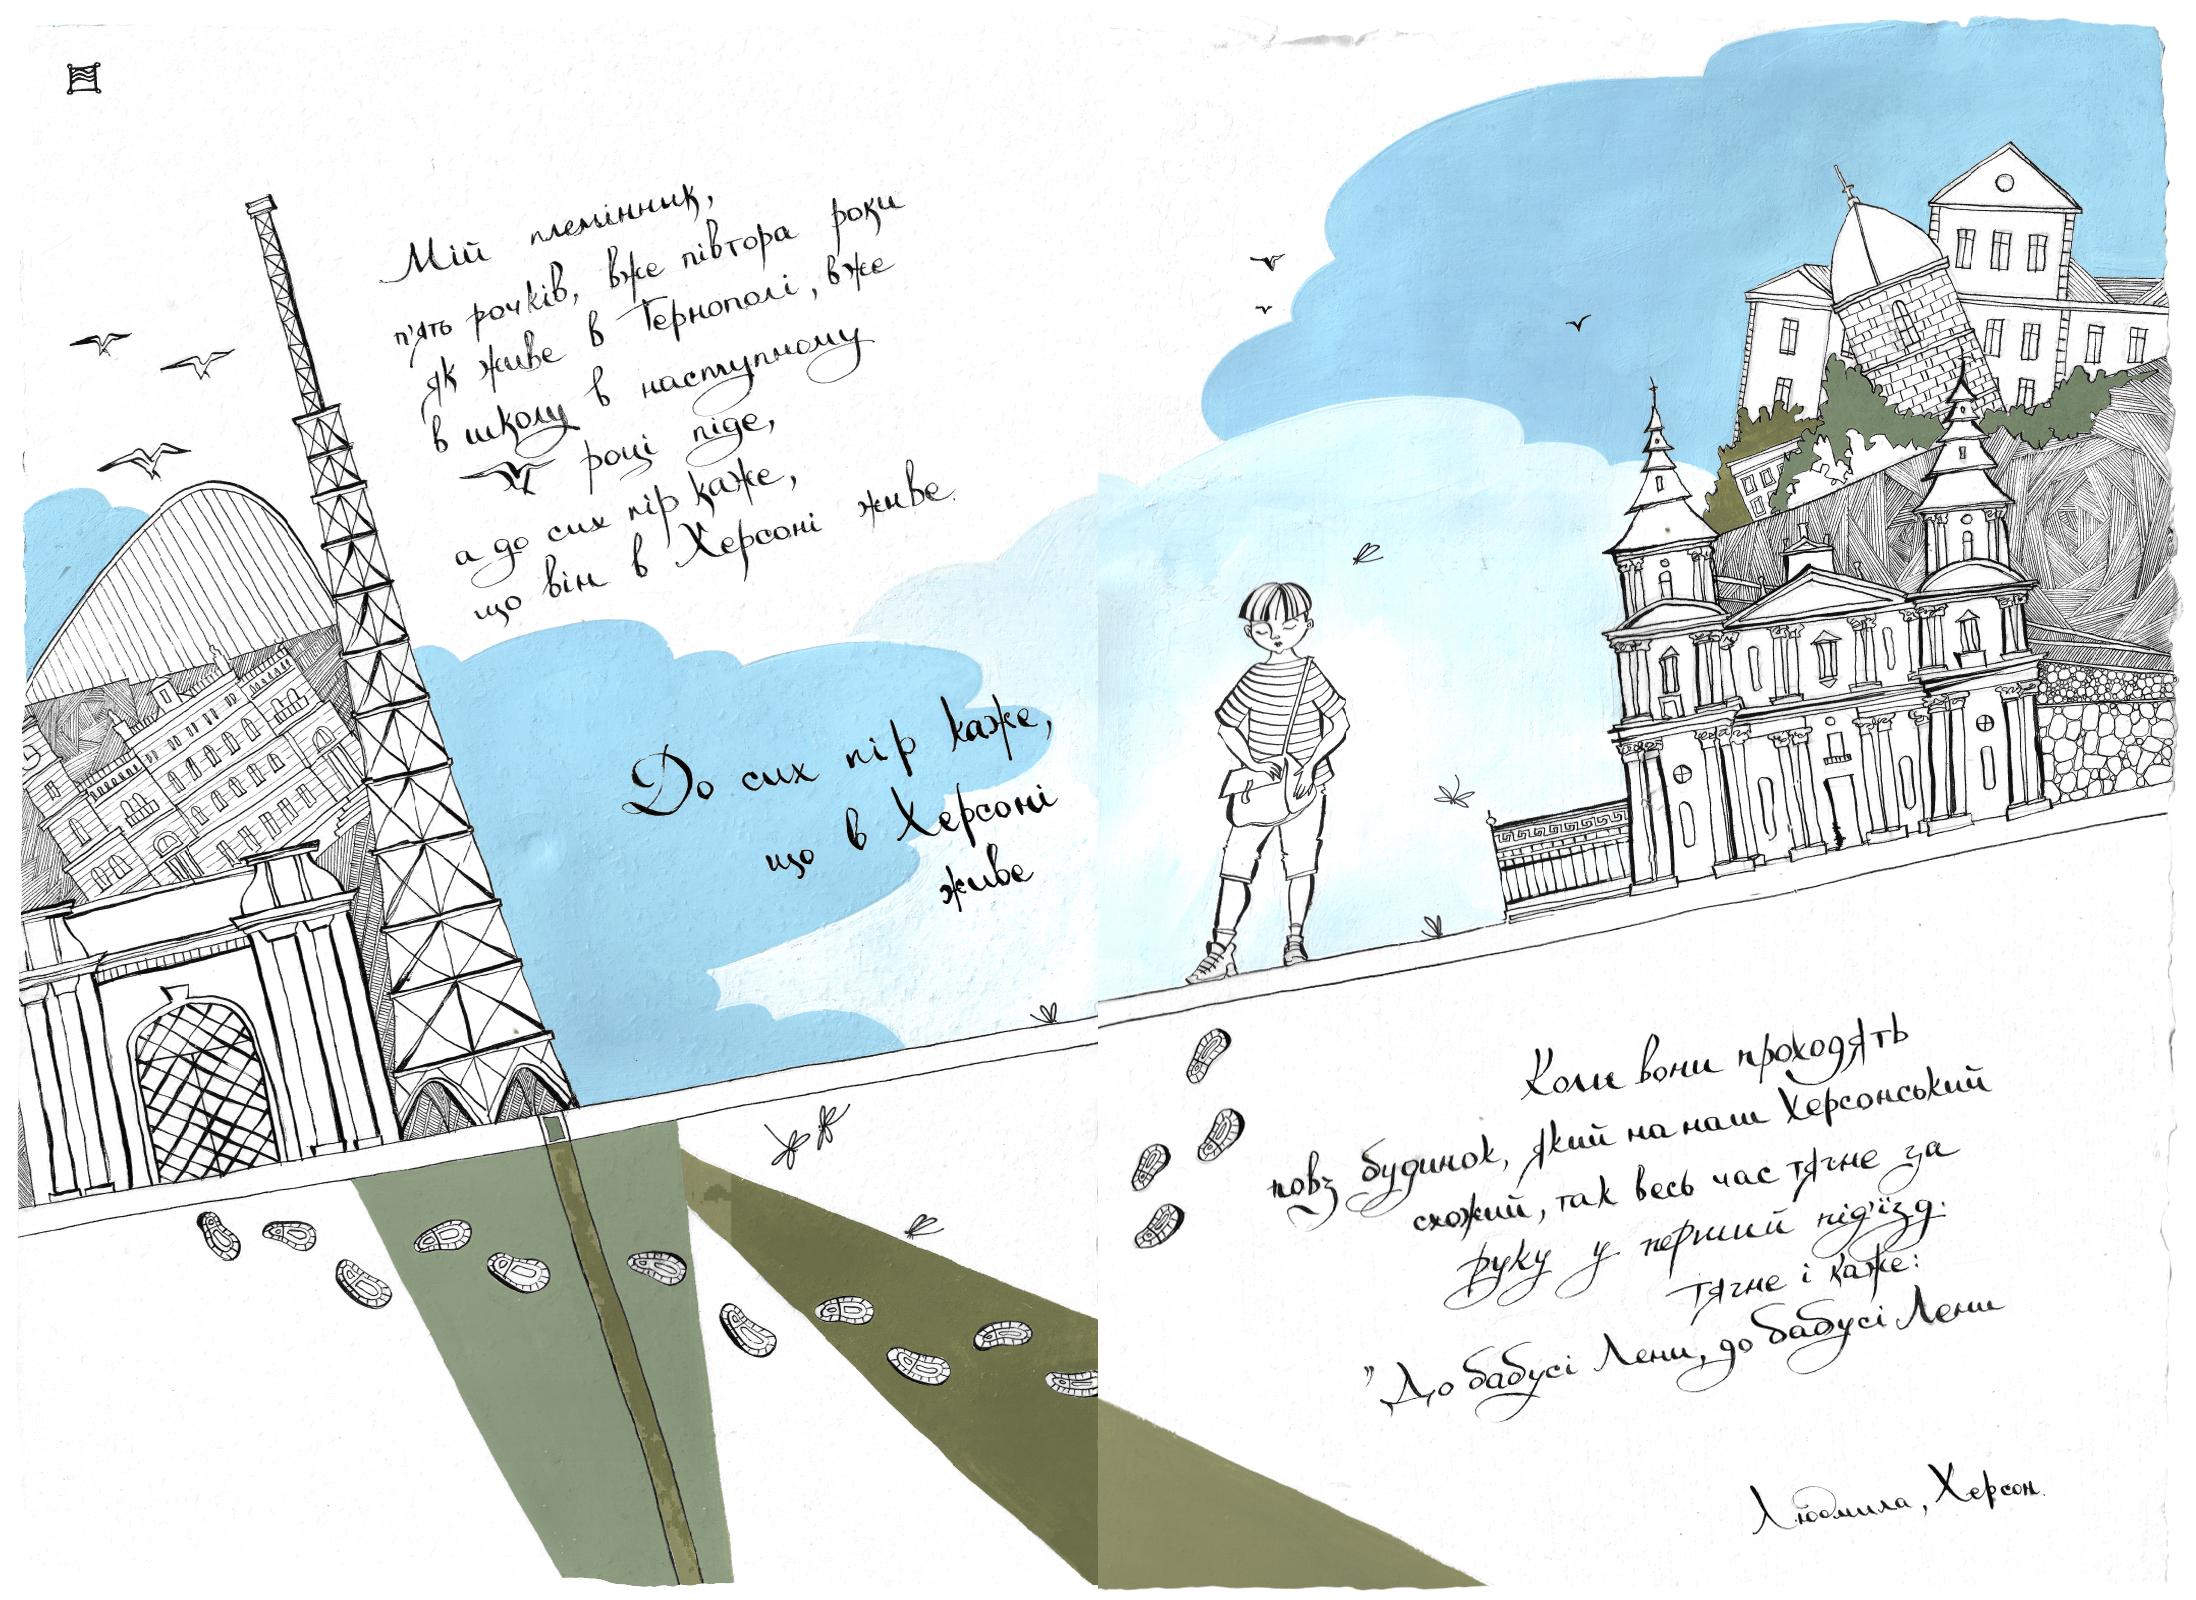 Мій племінник,
п'ять рочків, вже півтора роки
як живе в Тернополі, вже
в школу в наступному
році піде,
а до сих пір каже,
що він в Херсоні живе.
До сих пір каже,
що в Херсоні
живе
Коли вони проходять
повз будинок, який на наш Херсонський
схожий, так весь час тягне за
руку у перший під'їзд:
тягне і каже:
"До бабусі Лени, до бабусі Лени
Людмила, Херсон.